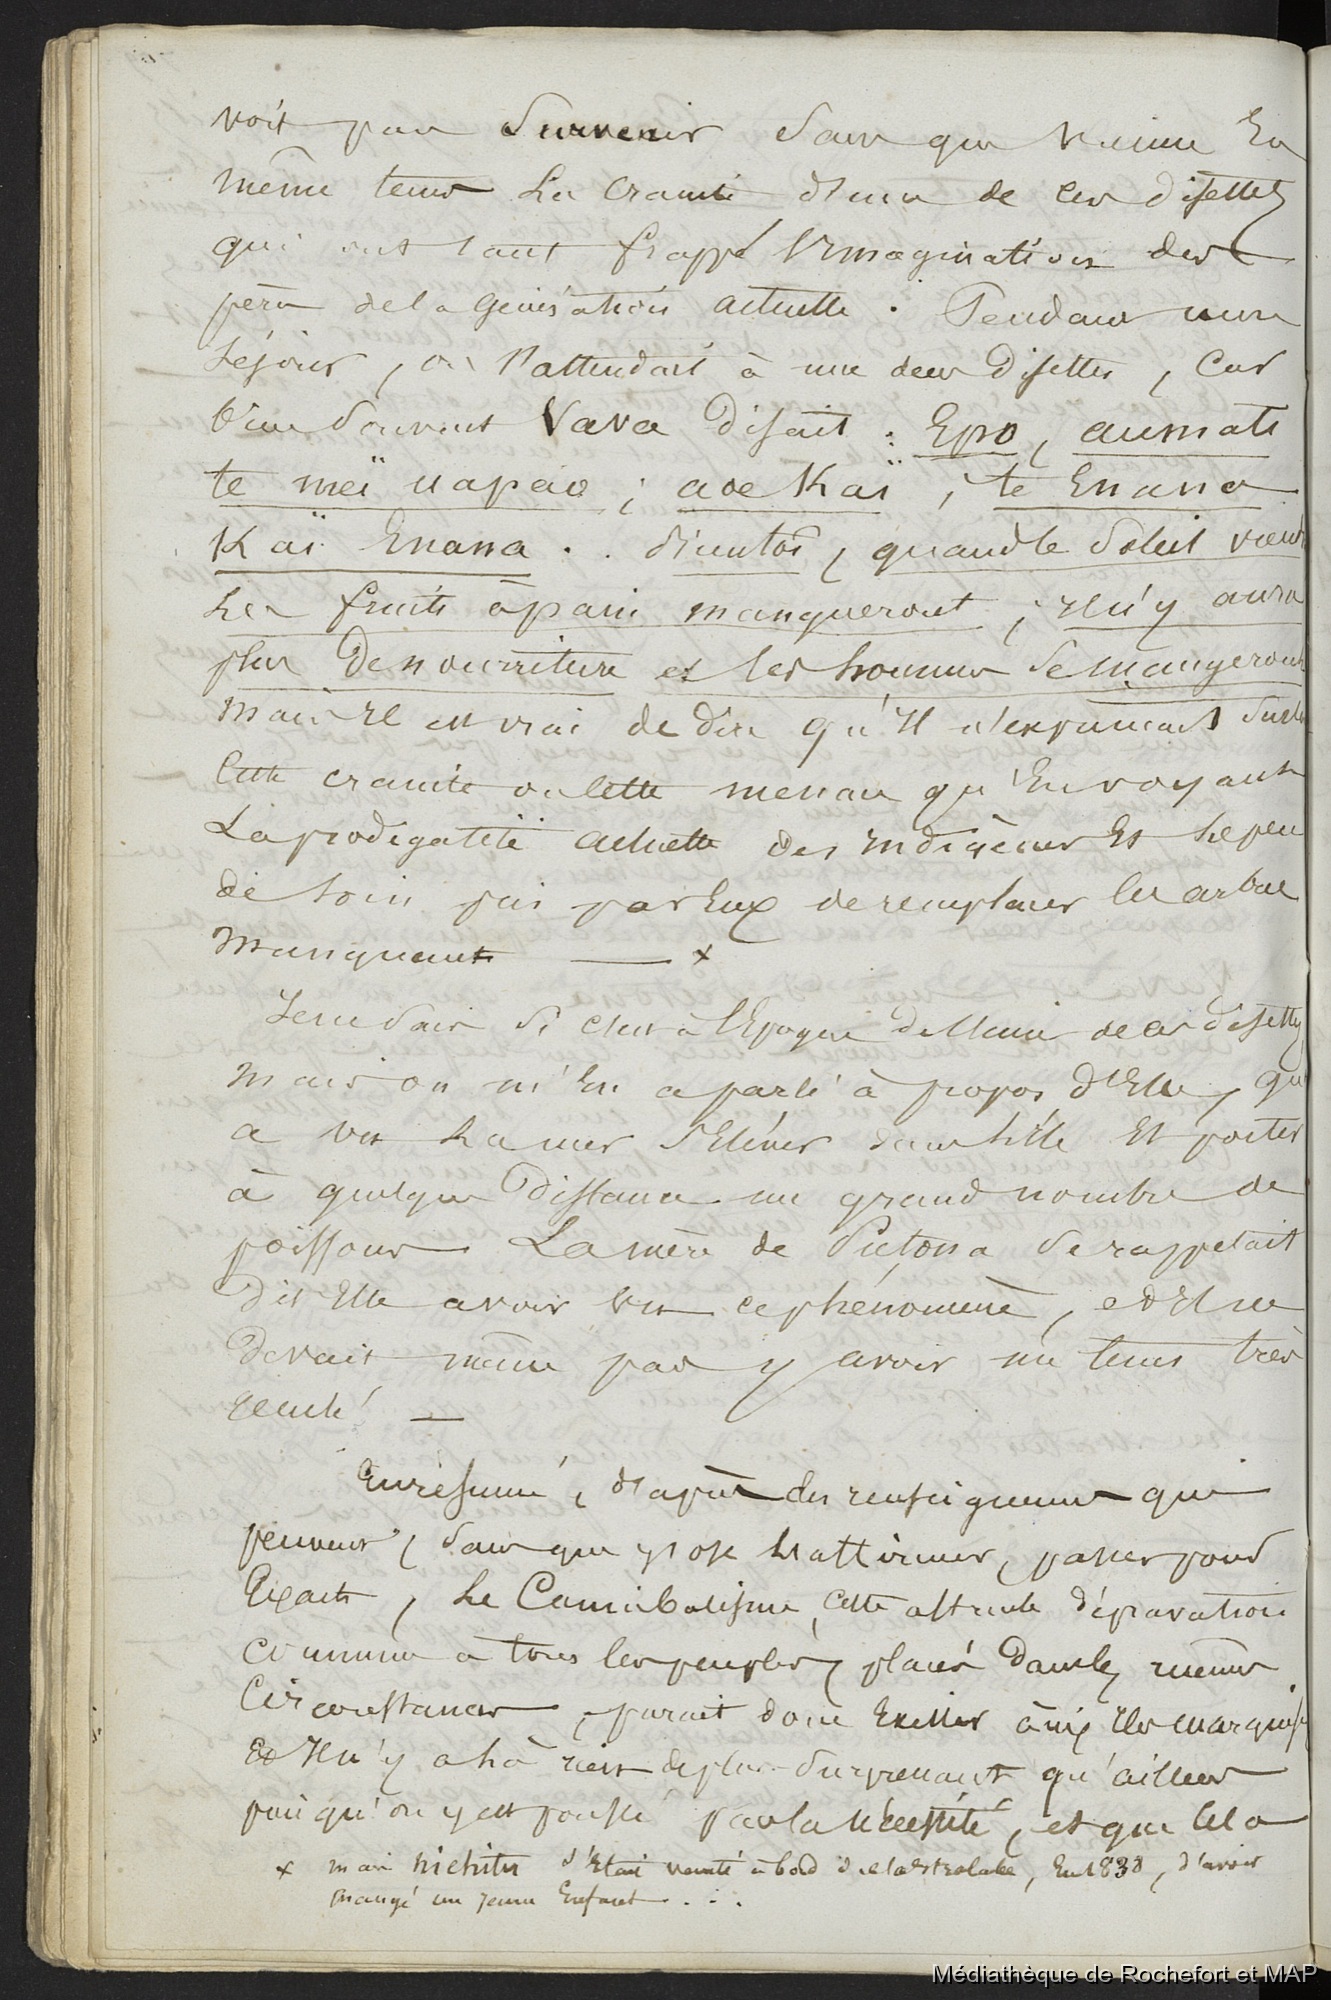 voit pas survenir sans que vienne en
même tems la crainte d'une de ces disettes
qui ont tant frappé l'imagination des
pères de la génération actuelle. Pendant mon
séjour, on s'attendait à une deces disettes, car
bien souvent Vava disait : Epo, aumati
te meï uapao ; aoe Kaï ; te Enana
Kaï Enana . . bientot, quand le soleil viend
les fruits à pain manqueront ; il n'y aura
plus de nourriture et les hommes se mangeront
mais il est vrai de dire qu'il n'exprimait
cette crainte ou cette menace qu'en voyant
la prodigalité actuelle des indigènes et le peu
de soin pris par eux de remplacer les arbres
manquants — x
Je ne sais si c'est à l'époque de l'une de ces disettes
mais on m'en a parlé à propos d'elle, qu'
a vu la mer s'élever dans l'île et porter
à quelque distance un grand nombre de
poissons. La mère de Pietona se rappelait
dit elle avoir vu ce phénomène, et il ne
devait même pas y avoir un tems très
reculé —
En résumé, d'après des renseignemens qui
peuvent, sans que j'ose l'affirmer, passer pour
exacts, le Cannibalisme, cette affreuse dépravation
commune à tous les peuples placés dans les mêmes
circonstances, parait donc exister aux iles marquises
et il n'y a là rien de plus surprenant qu'ailleurs
puisqu'on y est poussé par la nécessité, et que cela
x mais s'était vanté à bord de l'astrolabe, en 1838, d'avoir
mangé un jeune enfant . . .
Médiathèque de Rochefort et MAP